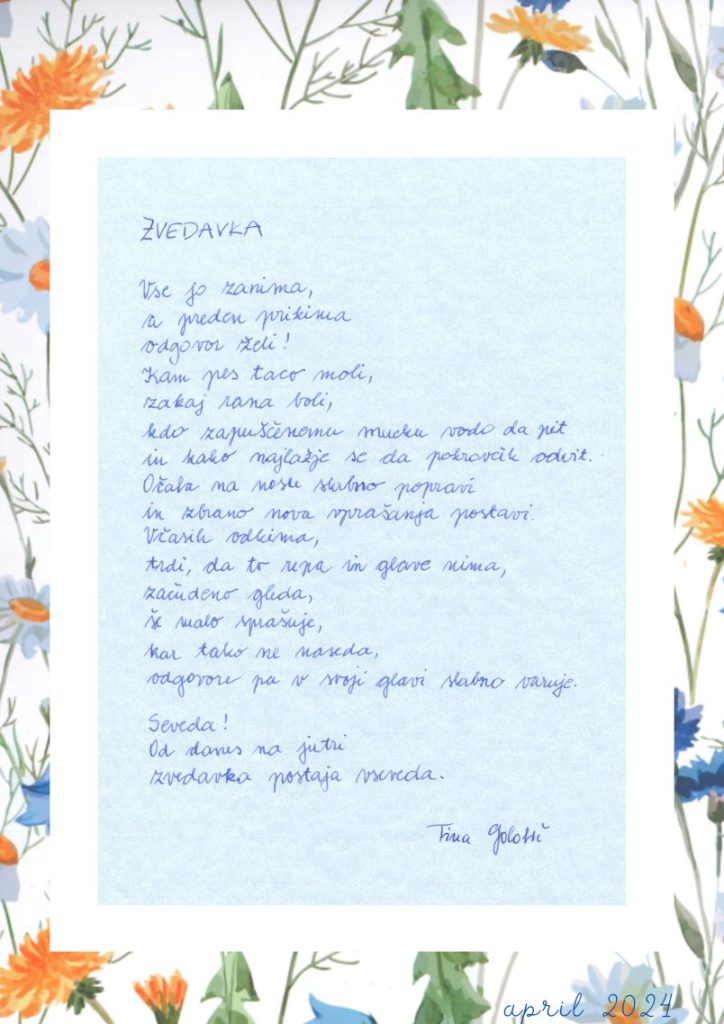 ZVEDAVKA
Vse jo zanima,
a preden prikima
odgovor želi!
Kam pes taco moli,
zakaj rana boli,
kdo zapuščenemu mucku vodo da pit
in kako najlažje se da pokrovček odvit.
Očala na nosu skrbno popravi
in zbrano nova vprašanja postavi.
Včasih odkima,
trdi, da to repa in glave nima,
začudeno gleda,
še malo sprašuje,
kar tako ne naseda,
odgovore pa v svoji glavi skrbno varuje.
Seveda!
Od danes na jutri
zvedavka postaja vseveda.
Tina
april 2024